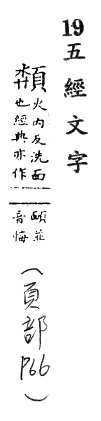 19五經文字
火內反洗面
也經典亦作
並
音悔
(頁部P66)